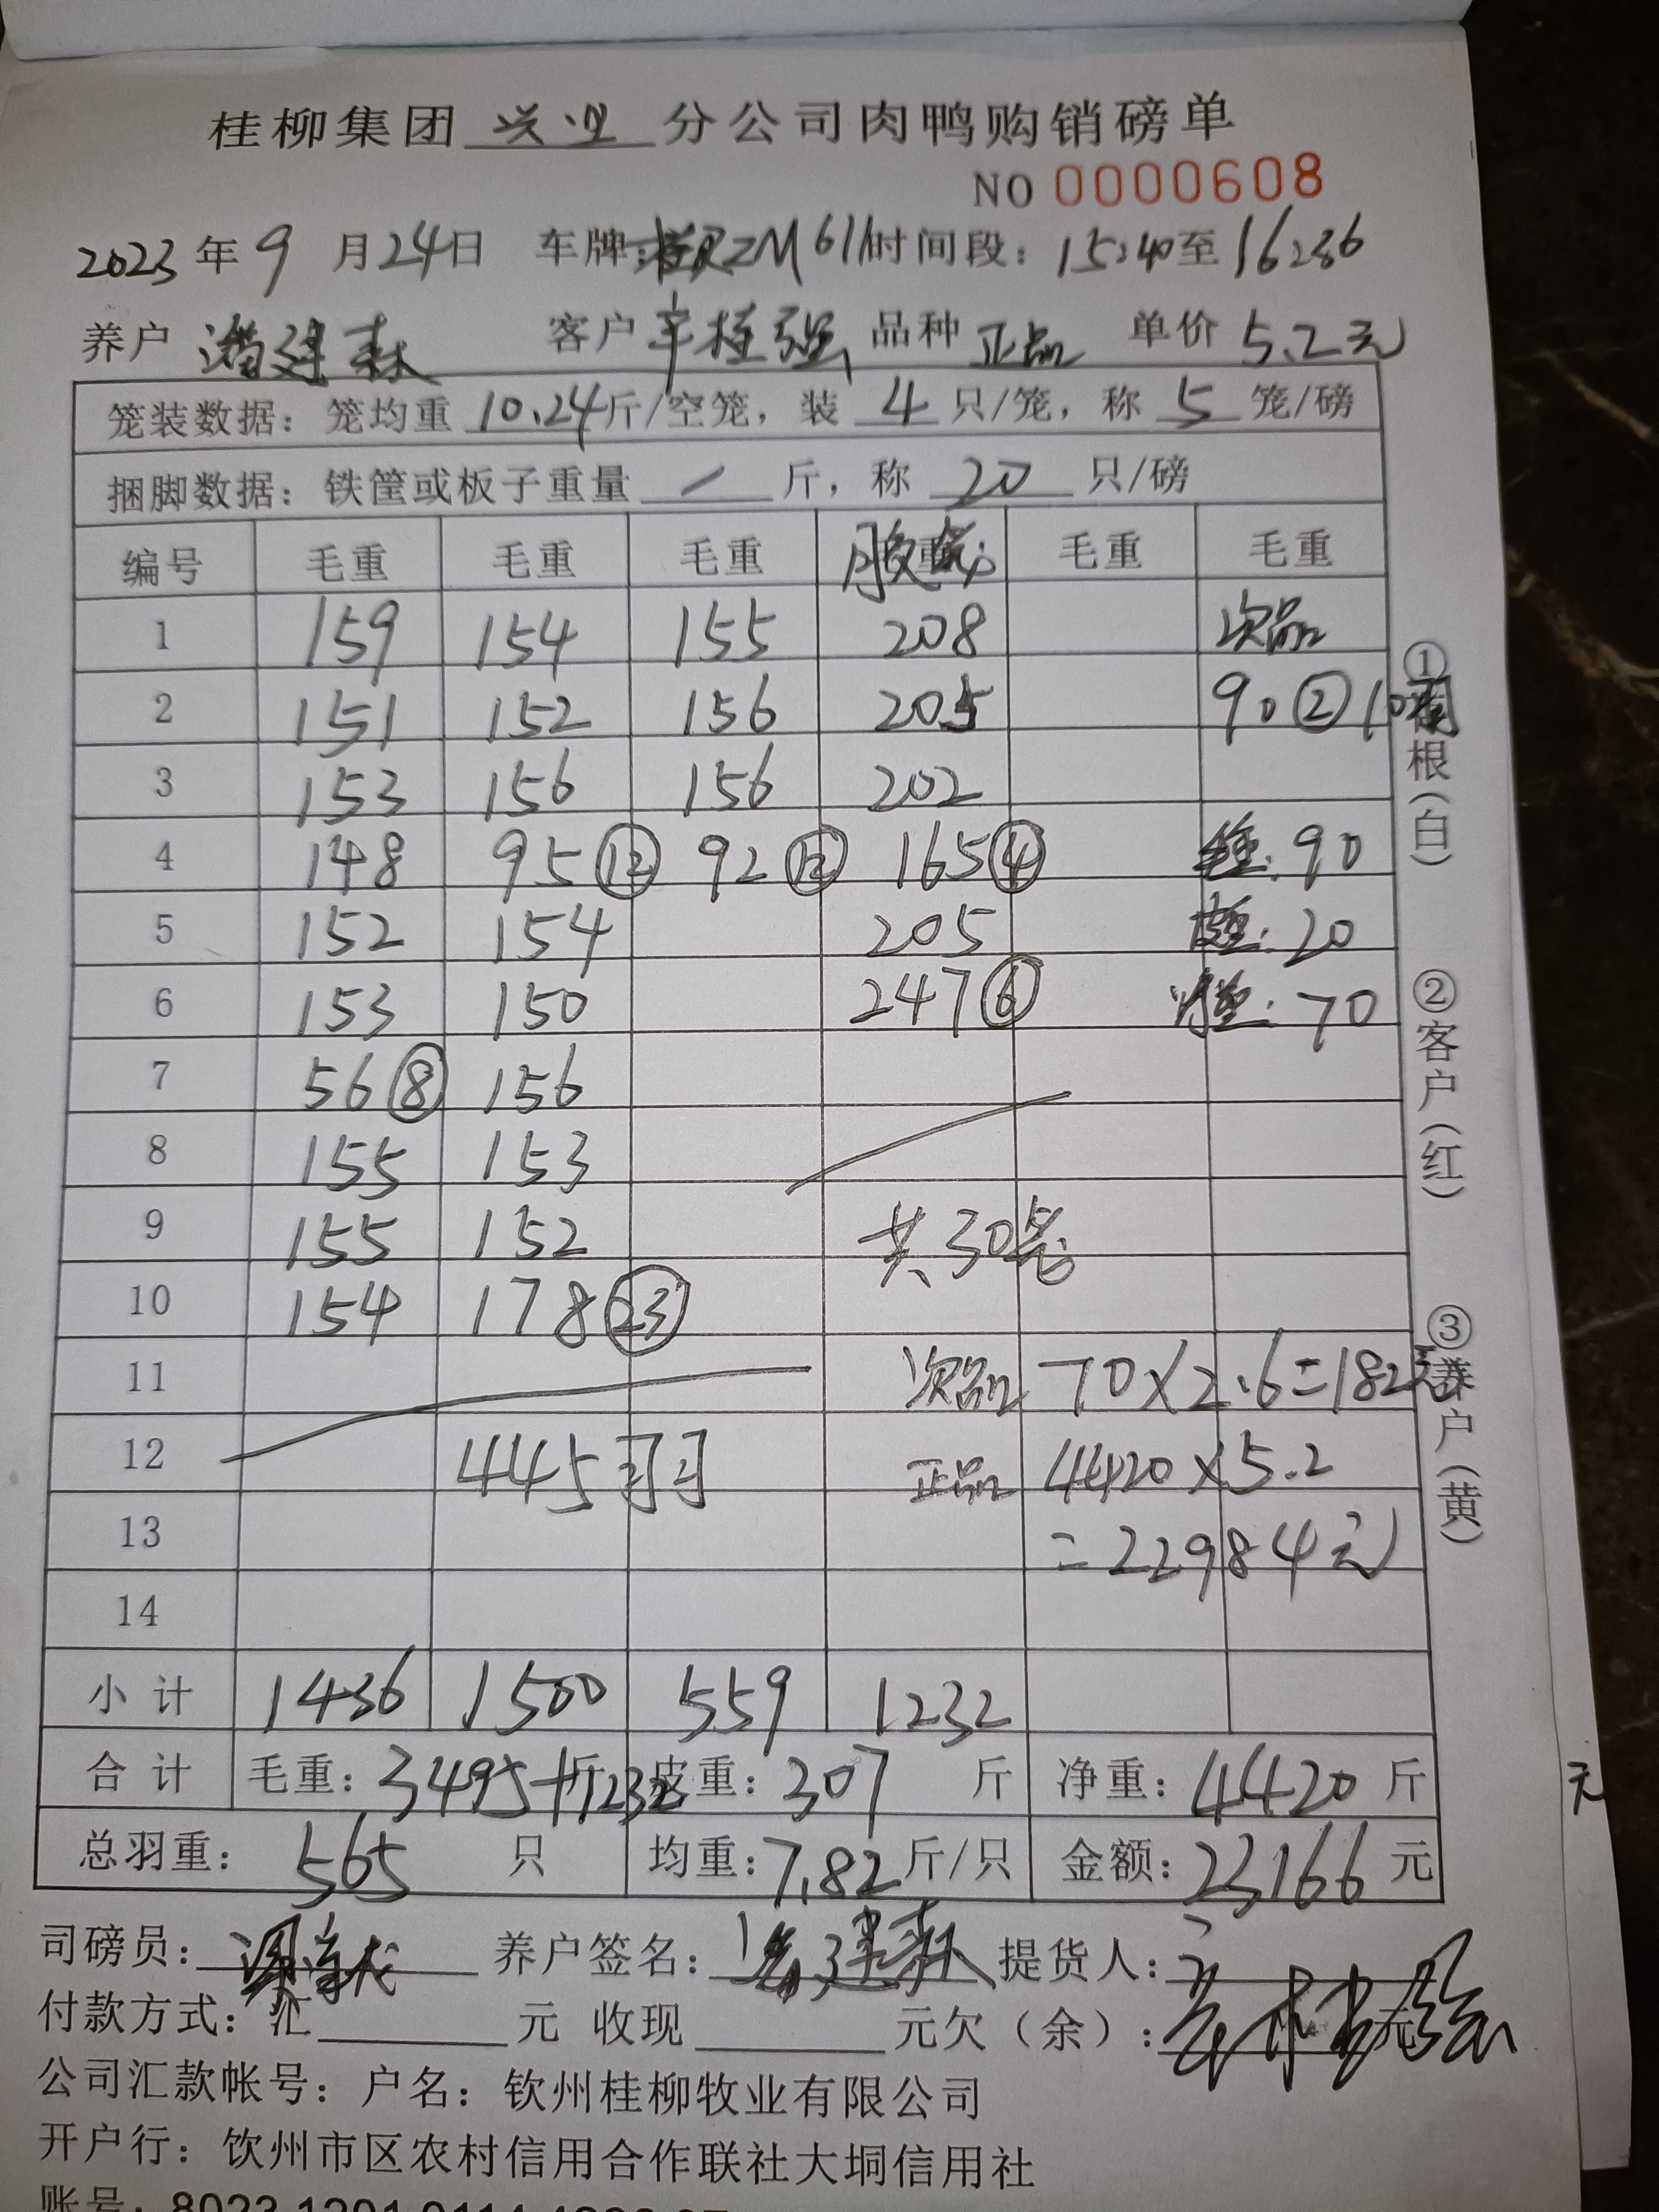 桂柳集团 兴业 分公司肉鸭购销磅单
NO 0000608
2023 年 9 月 24 日 车牌: ZM611 时间段: 15:40 至 16:36
养户 潘建森 客户 辛桂强 品种 正品 单价 5.2元
笼装数据: 笼均重 10.24 斤/空笼, 装 4 只/笼, 称 5 笼/磅
捆脚数据: 铁筐或板子重量 / 斤, 称 20 只/磅
编号 毛重 毛重 毛重 毛重 毛重
1 159 154 155 208 次品
2 151 152 156 205 90 ② 10
3 153 156 156 202
4 148 95 ⑫ 92 ⑫ 165 ④ 毛重: 90
5 152 154 205 皮重: 20
6 153 150 247 ⑥ 净重: 70
7 56 ⑧ 156
8 155 153
9 155 152 共30笼
10 154 178 ㉓
11 次品 70×2.6=182元
12 445羽 正品 4420×5.2
13 =22984元
14
小计 1436 1500 559 1232
合计 毛重: 3495+1232 斤 皮重: 307 斤 净重: 4420 斤
总羽重: 565 只 均重: 7.82 斤/只 金额: 23166 元
①存根(白)
②客户(红)
③养户(黄)
元
司磅员: 养户签名: 潘建森 提货人:
付款方式: 汇 元 收现 元欠(余): 元
公司汇款帐号: 户名: 钦州桂柳牧业有限公司
开户行: 钦州市区农村信用合作联社大垌信用社
账号: